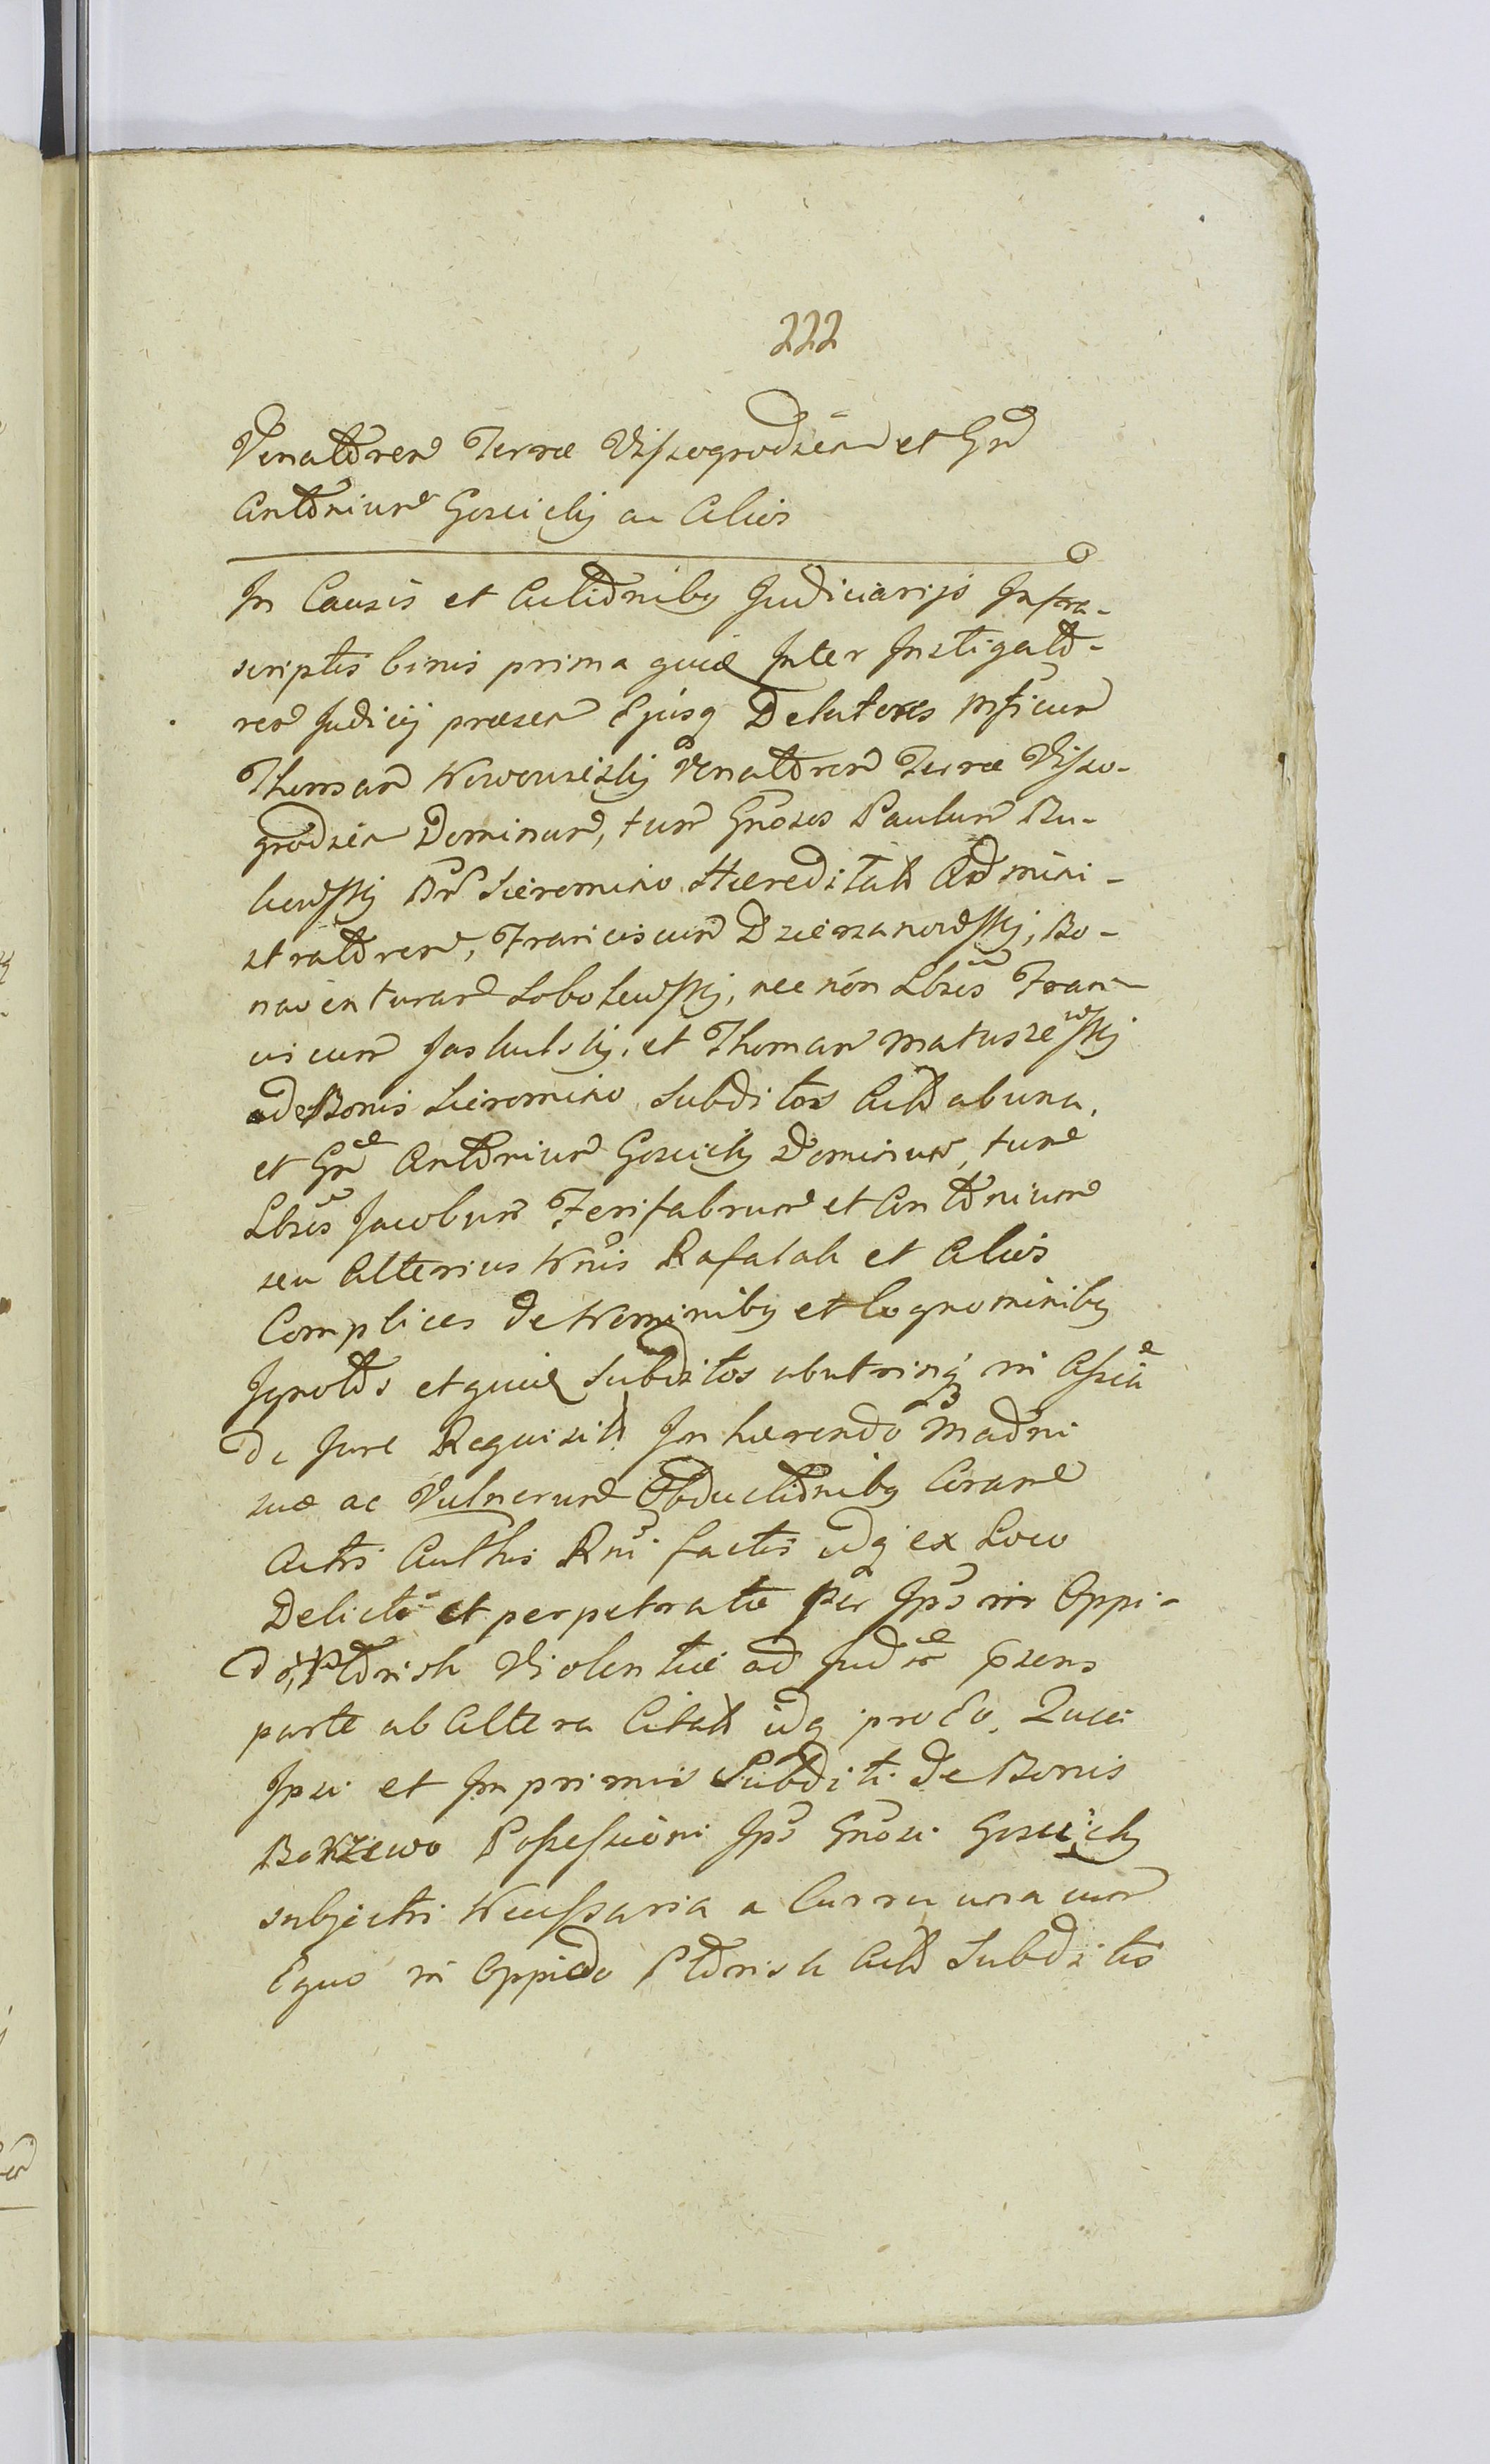 222
Venatorem Terræ Viszogrodzen et Gnd
Antonium Goscicky ac Alios
In Causis et Actionibus Judiciarijs Infra-
scriptis binis prima quidem Inter Instigato-
rem Judicij præsen Ejusq Delatores Mficum
Thomam Nowowieisky Venatorem Terræ Viszo-
grodzen Dominum, tum Gnosos Paulum Ru-
kowsky Bnr Sieromino Hæreditarh Admini-
stratorem, Franciscum Dzierzanowsky, Bo-
naventuram Sobolewsky, nec nón Lbres Fran-
ciscum Jaskulsky, et Thomam Matuszewsky
de Bonis Sieromino Subditos Acth ab una,
et Gnd Antonium Goscicky Dominum, tum
Lbres Jacobum Ferifabrum et Antonium
seu Alterius Nnis Rafalak et Alios
Complices de Nominibus et Cognominibus
Ignotos et quid Subditos ab utrinq in Assia
de Jure Requisith Inhærendo Madni
suæ ac Vulnerum Obductionibus Coram
Actis Authis Rni factis idq ex Loco
Delicti et perpetratæ per Ipos in Oppi-
do Płonsk Violentiæ ad Judm pzens
parte ab Altera Citath idq pro Eo, Quia
Ipsi et Imprimis Subditi de Bonis
Borzewo Possessioni Ips Gnosi Gosciicky
subjecti Necessaria a Curru una cum
Equo in Oppido Płonsk Acth Subditis